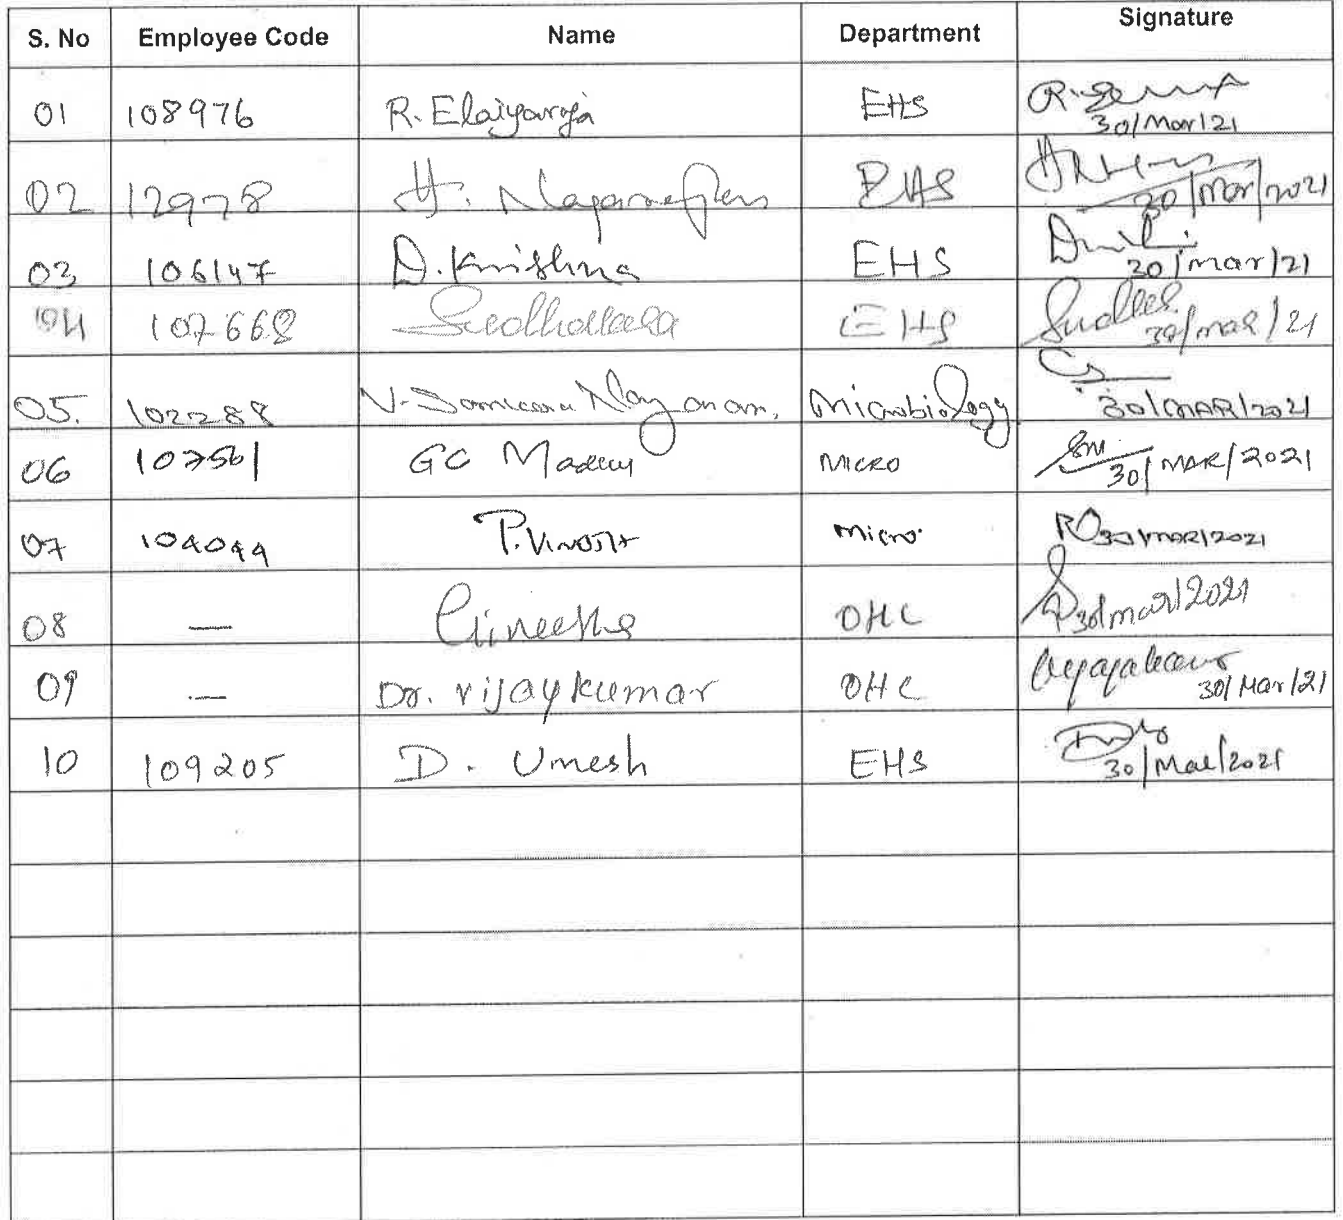 S. No Employee Code Name Department Signature
01 108976 R. Elaiyaraja EHS
30/Mar/21
02 12978 H. EHS
30/Mar/2021
03 106147 D. Krishna EHS
30/mar/21
04 107668 Sudhakara EHS
30/mar/21
05. 102288 V. Narayanan. Microbiology
30/MAR/2021
06 107561 GC MICRO
30/MAR/2021
07 104044 P. Micro
30/MAR/2021
08 — OHC
30/mar/2021
09 — Dr. vijaykumar OHC
30/Mar/21
10 109205 D. Umesh EHS
30/Mar/2021